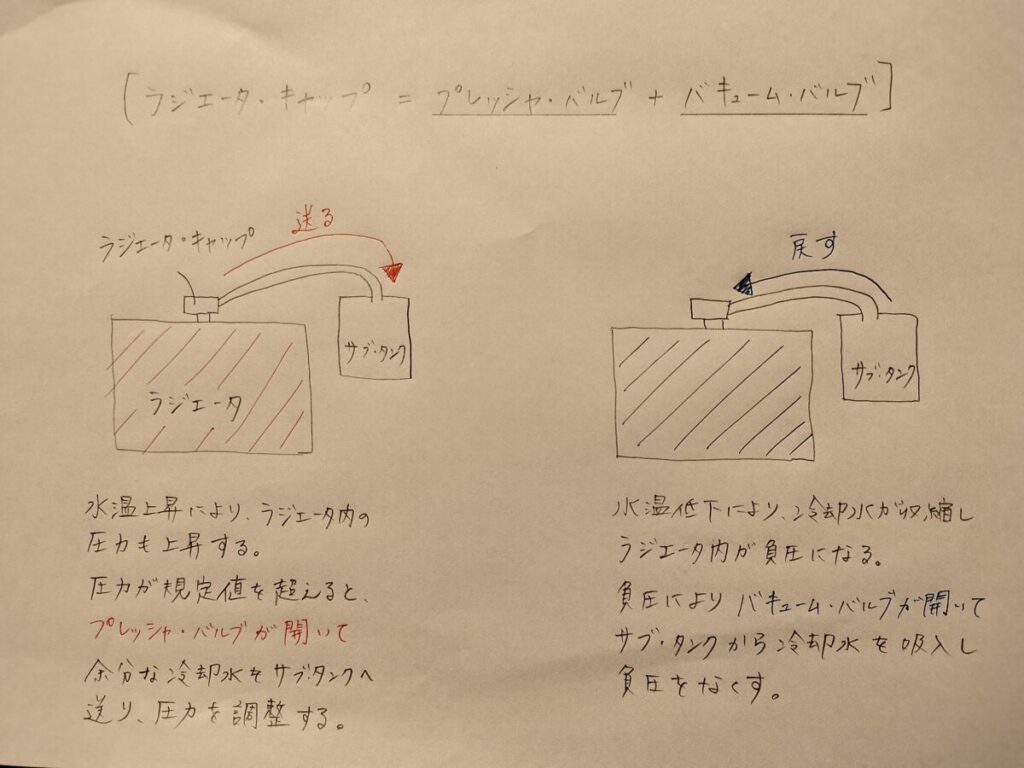 [ラジエータ・キャップ = プレッシャ・バルブ + バキューム・バルブ]
送る
ラジエータ・キャップ
サブ・タンク
ラジエータ
水温上昇により、ラジエータ内の
圧力も上昇する。
圧力が規定値を超えると、
プレッシャ・バルブが開いて
余分な冷却水をサブタンクへ
送り、圧力を調整する。
戻す
サブ・タンク
水温低下により、冷却水が収縮し
ラジエータ内が負圧になる。
負圧によりバキューム・バルブが開いて
サブ・タンクから冷却水を吸入し
負圧をなくす。